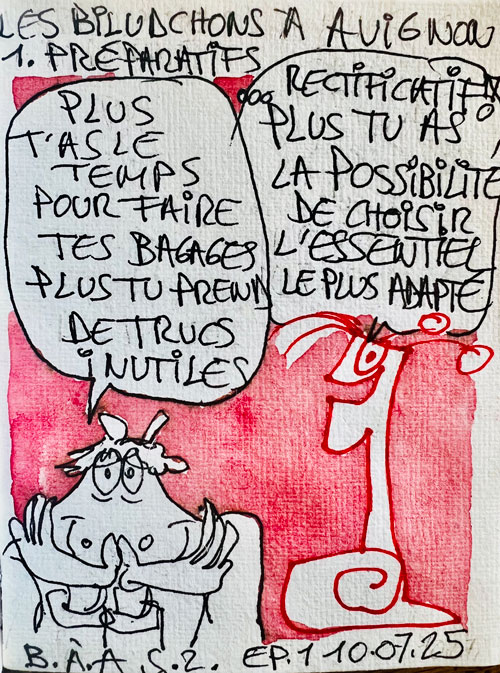 LES BILUDCHONS À AVIGNON
1. PRÉPARATIFS
PLUS
T'AS LE
TEMPS
POUR FAIRE
TES BAGAGES
PLUS TU PREND
DE TRUCS
INUTILES
RECTIFICATIF
PLUS TU AS
LA POSSIBILITÉ
DE CHOISIR
L'ESSENTIEL
LE PLUS ADAPTÉ
B.À.A S.2. EP.1 10.07.25